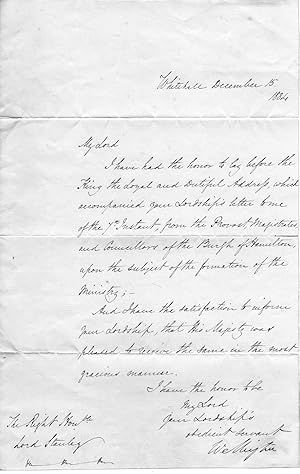 Whitehall December 15
1834
My Lord
I have had the honor to lay before the
King the Loyal and Dutiful Address, which
accompanied your Lordship's letter to me
of the 7th Instant, from the Provost, Magistrates
and Councillors of the Burgh of Hamilton,
upon the subject of the formation of the
Ministry;—
And I have the satisfaction to inform
your Lordship, that His Majesty was
pleased to receive the same in the most
gracious manner.
I have the honor to be
My Lord
your Lordship's
obedient servant
Wellington
The Right Honble
Lord Stanley